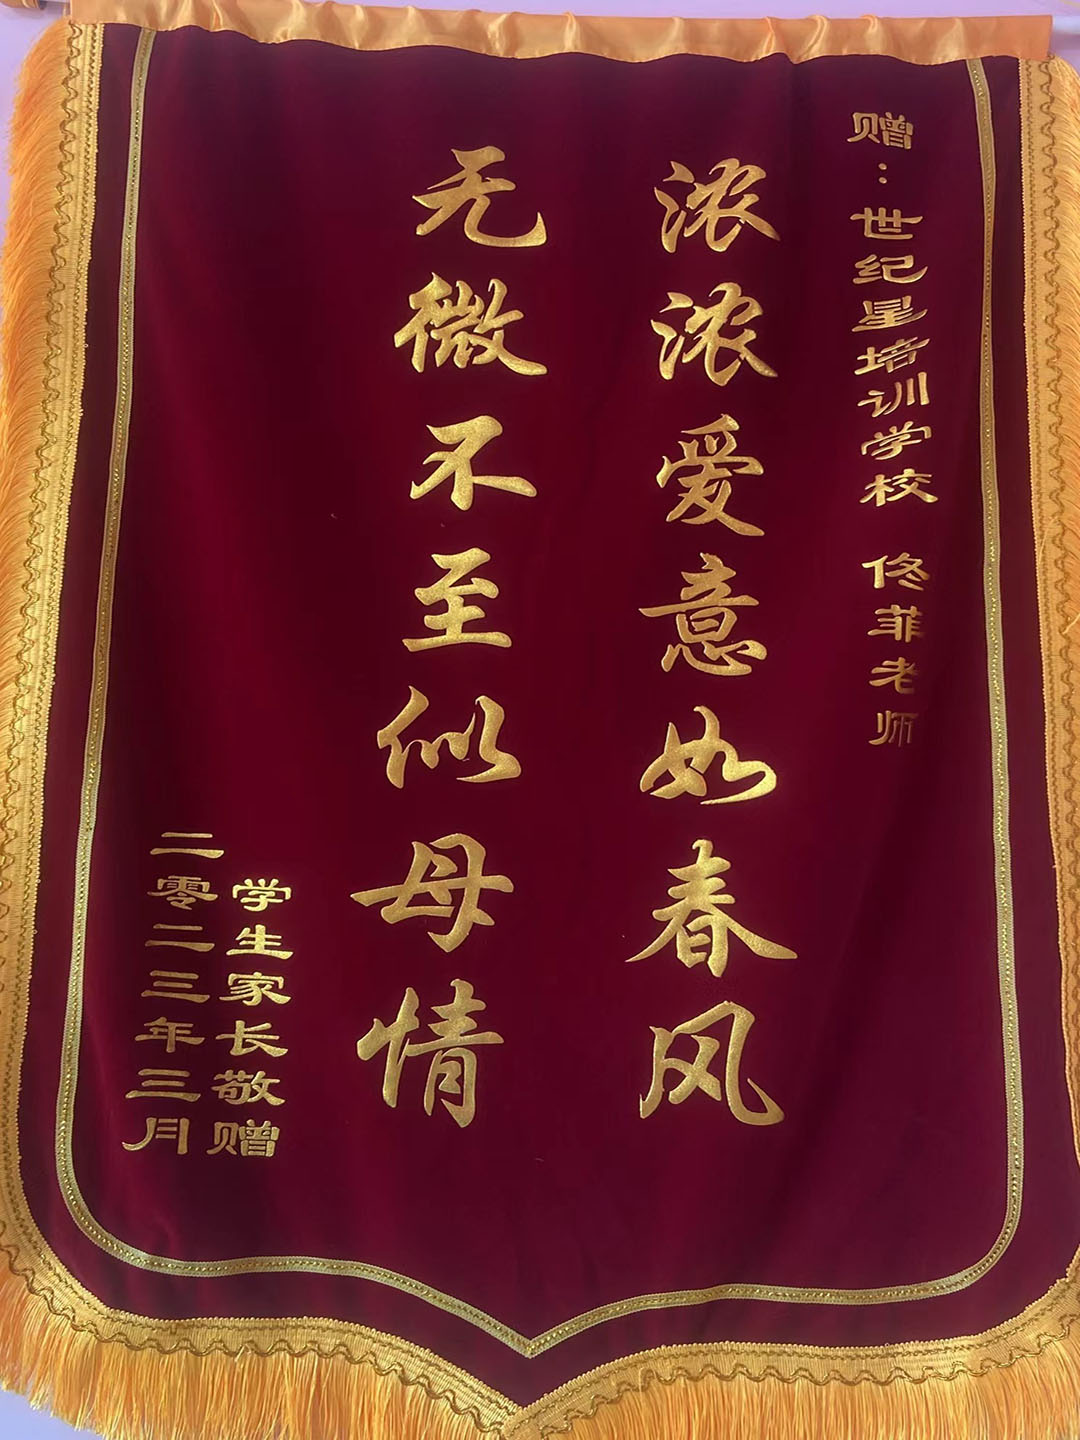 赠：世纪星培训学校 佟菲老师
浓浓爱意如春风
无微不至似母情
学生家长敬赠
二零二三年三月